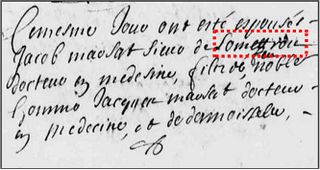 Ce mesme Jour ont esté espousés
Jacob mausat Sieur de
docteur en medesine, fils de noble
homme Jacques mausat docteur
en medecine, et de demoiselle,